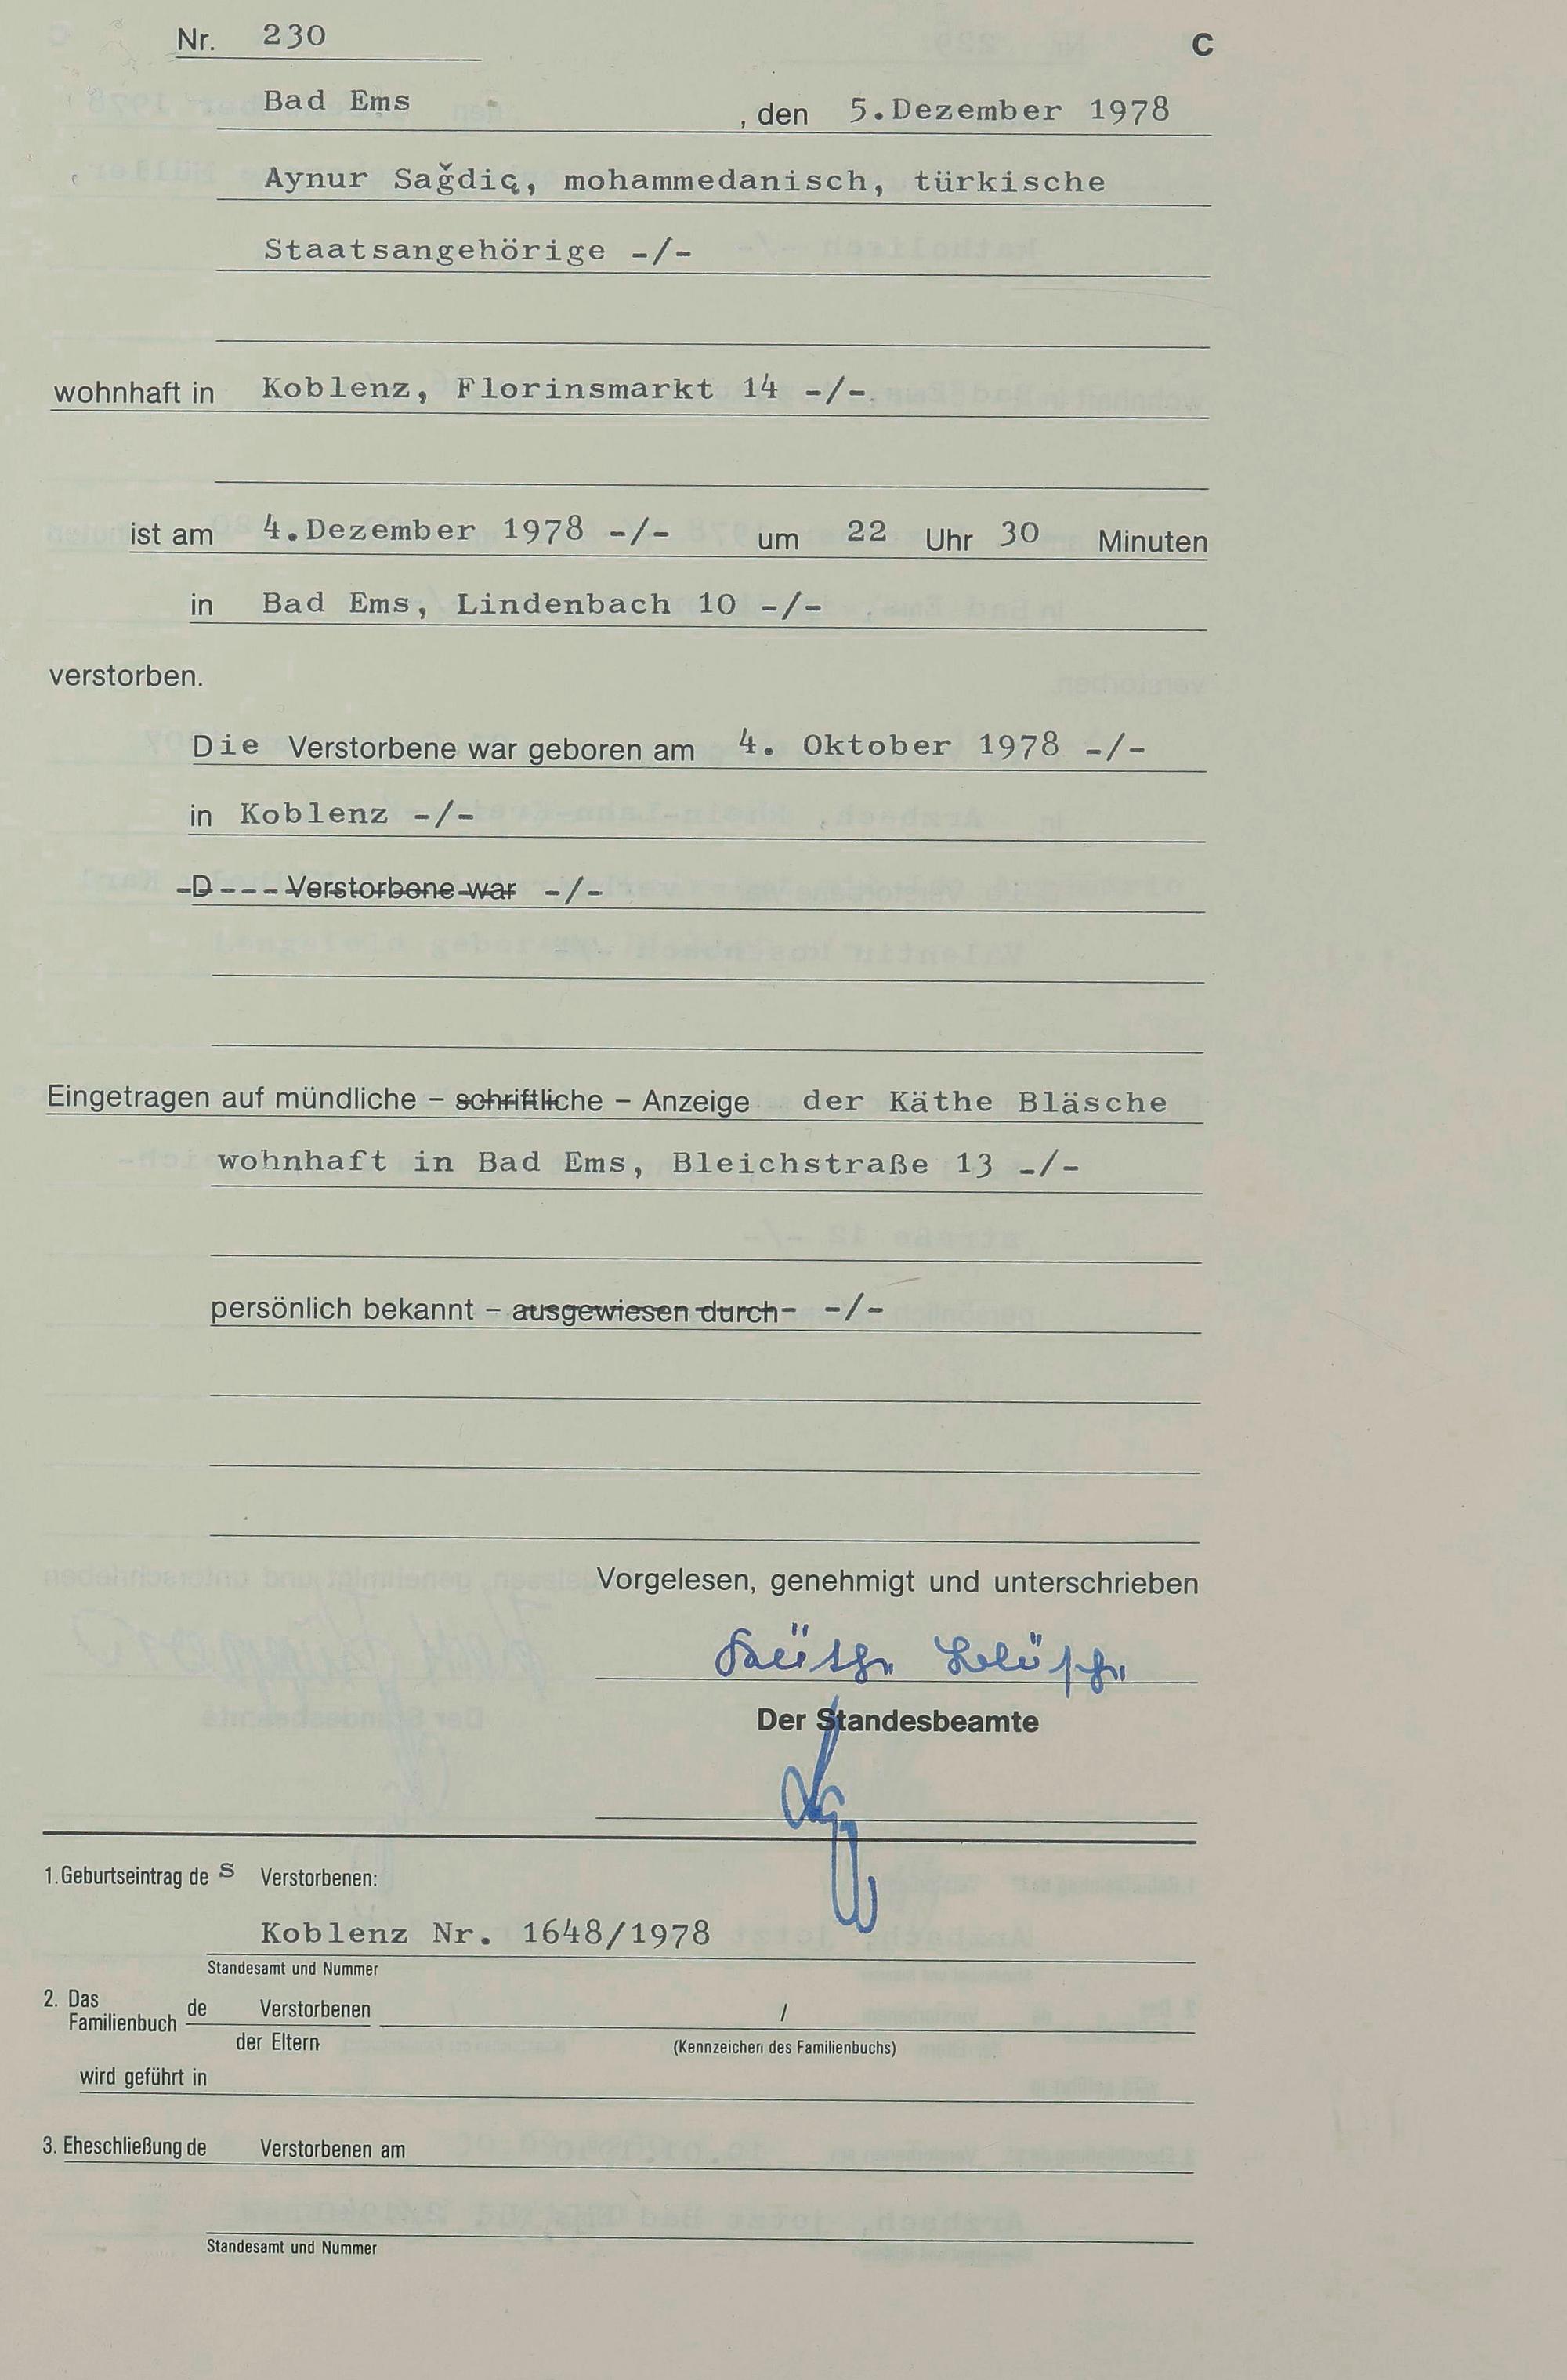 Nr. 230 C
Bad Ems , den 5.Dezember 1978
Aynur Sağdiç, mohammedanisch, türkische
Staatsangehörige -/-
wohnhaft in Koblenz, Florinsmarkt 14 -/-
ist am 4.Dezember 1978 -/- um 22 Uhr 30 Minuten
in Bad Ems, Lindenbach 10 -/-
verstorben.
Die Verstorbene war geboren am 4. Oktober 1978 -/-
in Koblenz -/-
-D---- Verstorbene war -/-
Eingetragen auf mündliche – schriftliche – Anzeige der Käthe Bläsche
wohnhaft in Bad Ems, Bleichstraße 13 -/-
persönlich bekannt – ausgewiesen durch- -/-
Vorgelesen, genehmigt und unterschrieben
Käthe Bläsche
Der Standesbeamte
1. Geburtseintrag de s Verstorbenen:
Koblenz Nr. 1648/1978
Standesamt und Nummer
2. Das Familienbuch de Verstorbenen /
der Eltern (Kennzeichen des Familienbuchs)
wird geführt in
3. Eheschließung de Verstorbenen am
Standesamt und Nummer